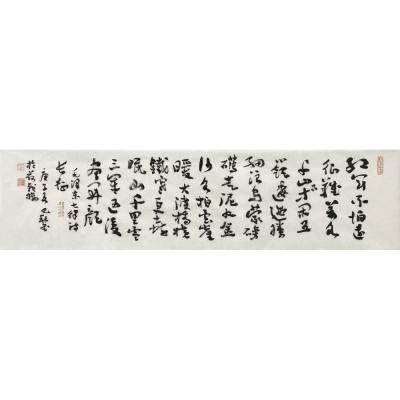 红军不怕远
征难万水
千山只等闲五
岭逶迤腾
细浪乌蒙磅
礴走泥丸金
沙水拍云崖
暖大渡桥横
铁索寒更喜
岷山千里雪
三军过后
尽开颜
毛泽东七律诗
长征
庚子